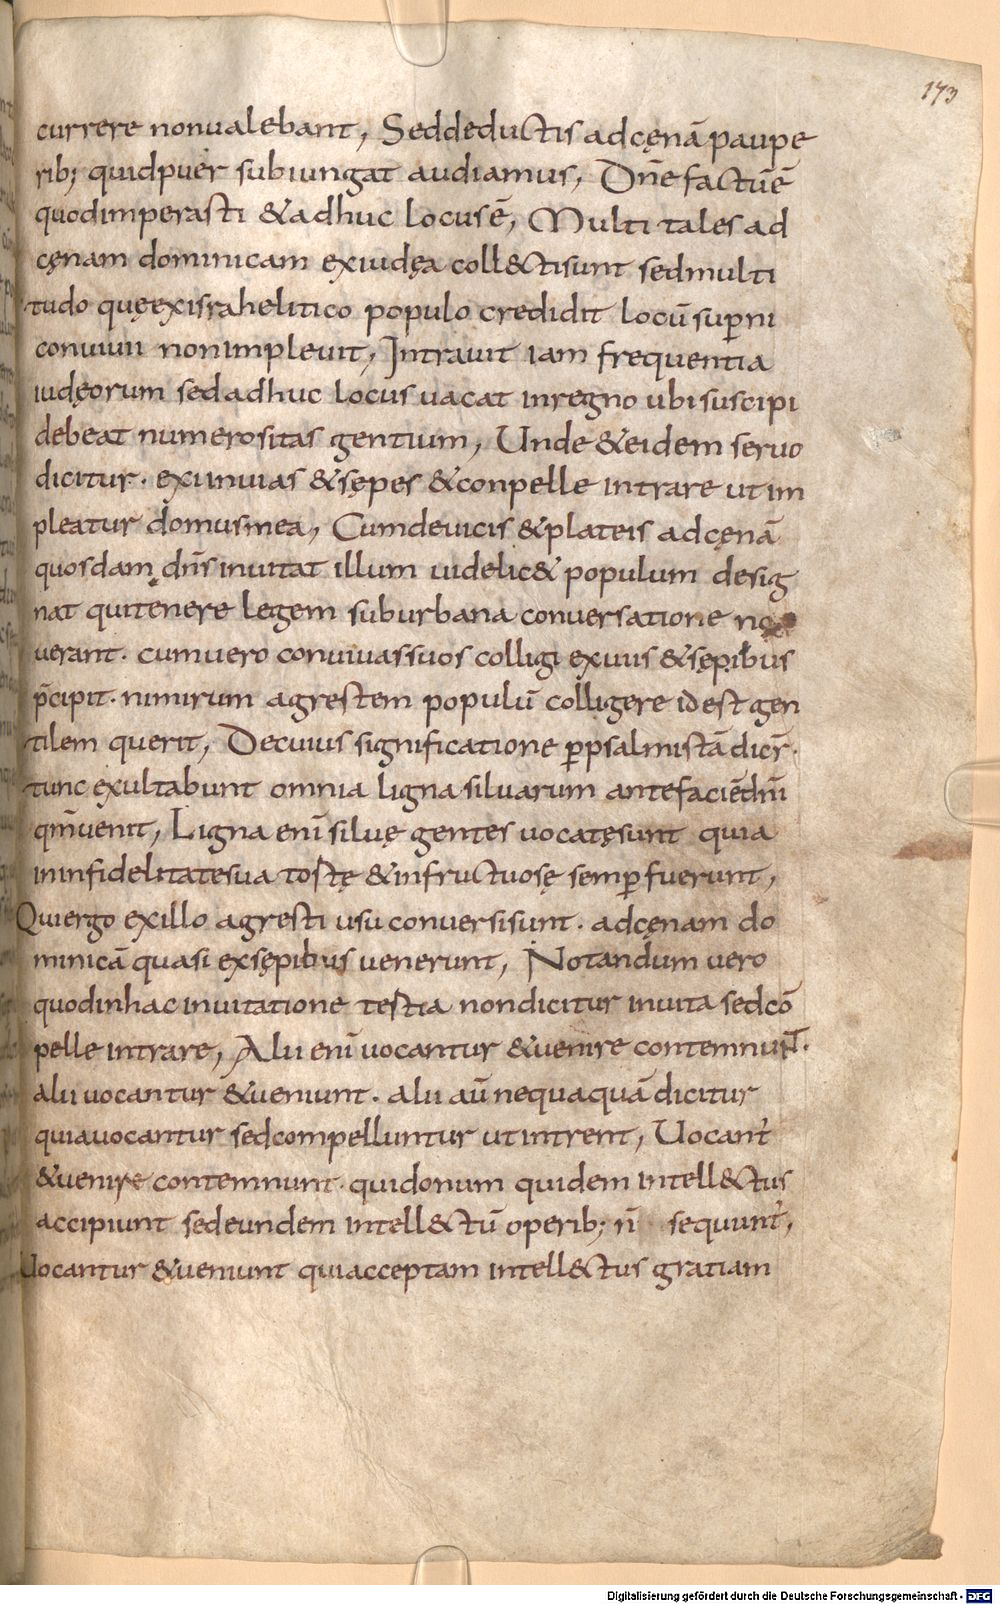 173
currere nonualebant, Seddeductis adcęnā paupe
rib; quidpuer subiungat audiamus, Dn̄e factūē
quodimperasti &adhuc locusē, Multi tales ad
cęnam dominicam exiudęa coll&tisunt sedmulti
tudo quęexisrahelitico populo credidit locū suꝑni
conuiuii nonimpleuit, Intrauit iam frequentia
iudęorum sedadhuc locus uacat inregno ubisuscipi
debeat numerositas gentium, Unde &eidem seruo
dicitur· exiinuias &sępes &conpelle intrare utim
pleatur domusmea, Cumdeuicis &plateis adcęnā
quosdam dn̄s inuitat illum uidelic& populum desig
nat quitenere legem suburbana conuersatione no
uerant· cumuero conuiuassuos colligi exuiis &sępibus
p̄cipit· nimirum agrestem populū colligere idest gen
tilem querit, Decuius significatione ꝑpsalmistā dicr̄·
tunc exultabunt omnia ligna siluarum antefaciēdn̄i
qm̄uenit, Ligna enī siluę gentes uocatęsunt quia
ininfidelitatesua tostę &infructuosę semꝑfuerunt,
Quiergo exillo agresti usu conuersisunt· adcęnam do
minicā quasi exsępibus uenerunt, Notandum uero
quodinhac inuitatione testia nondicitur inuita sedcō
pelle intrare, Alii enī uocantur &uenire contemnunT·
alii uocantur &ueniunt· alii aū nequaquā dicitur
quiauocantur sedcompelluntur utintrent, Uocant᷑
&uenire contemnunt· quidonum quidem intell&tus
accipiunt sedeundem intell&tū operib; n̄ sequunt᷑,
Uocantur &ueniunt quiacceptam intell&tus gratiam
Digitalisierung gefördert durch die Deutsche Forschungsgemeinschaft - DFG